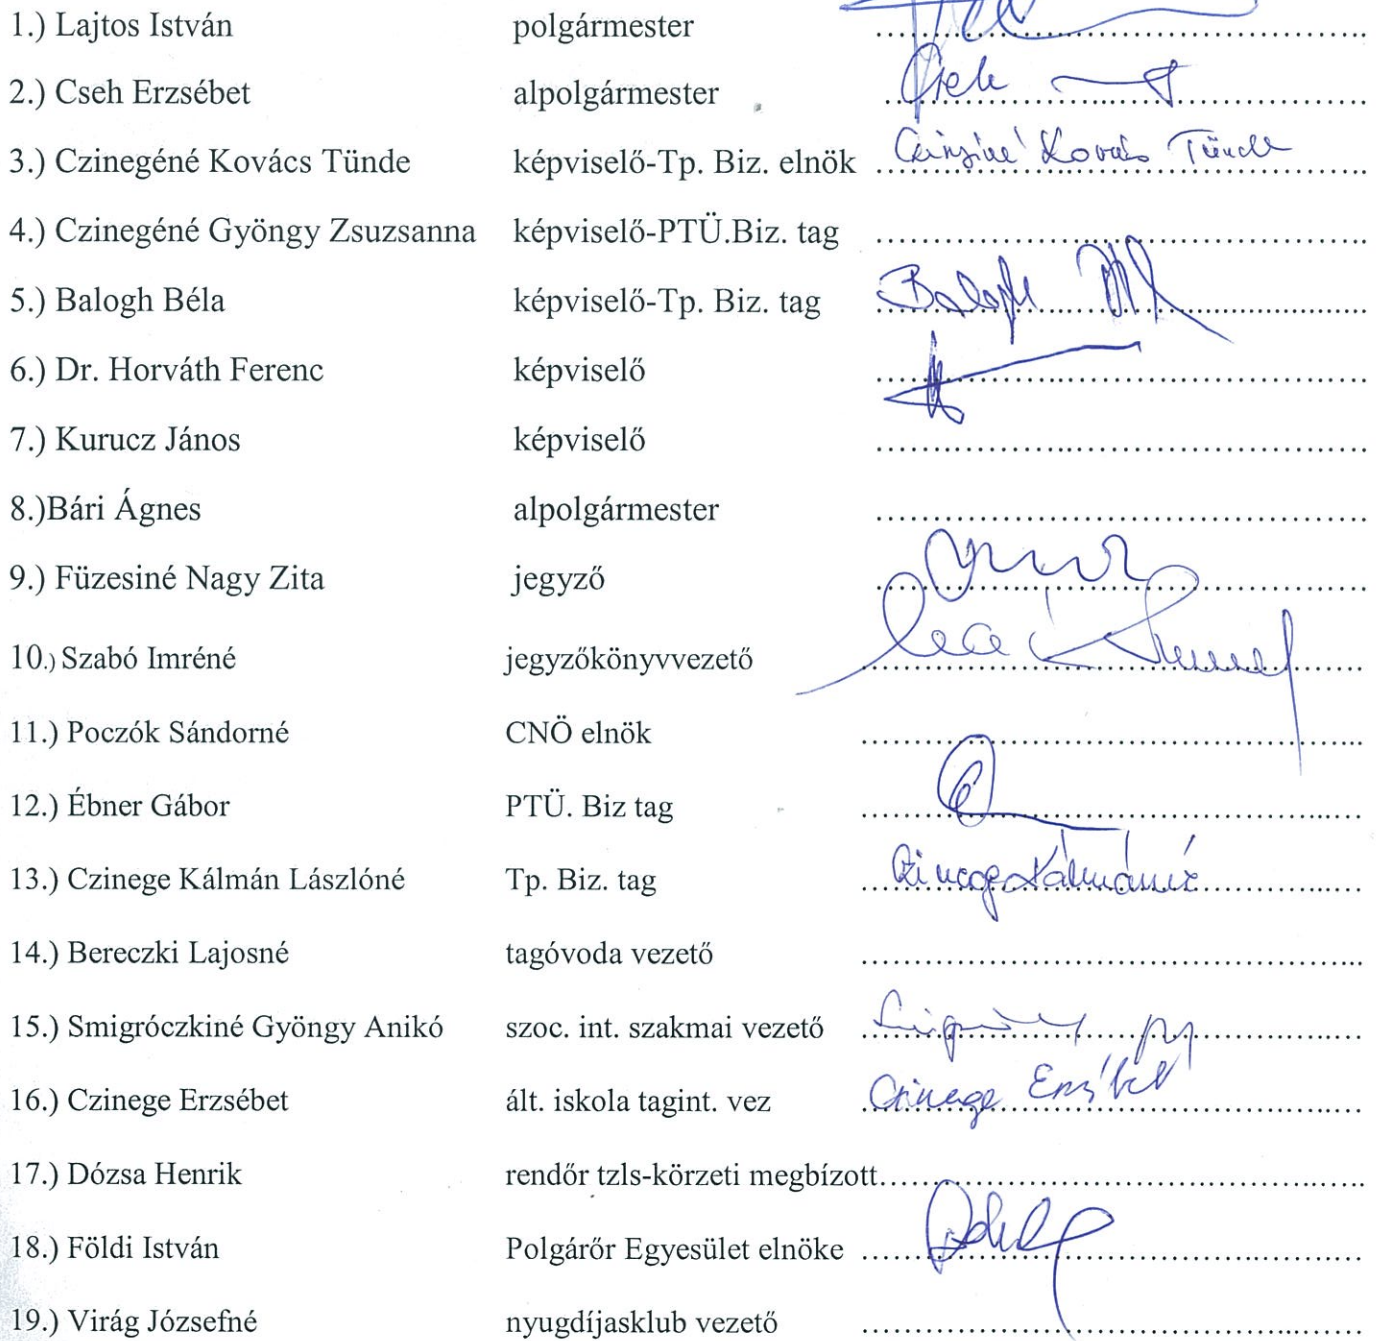 1.) Lajtos István polgármester ..................................................
2.) Cseh Erzsébet alpolgármester Cseh ..................................................
3.) Czinegéné Kovács Tünde képviselő-Tp. Biz. elnök Czinegéné Kovács Tünde ..................................................
4.) Czinegéné Gyöngy Zsuzsanna képviselő-PTÜ.Biz. tag ..................................................
5.) Balogh Béla képviselő-Tp. Biz. tag Balogh ..................................................
6.) Dr. Horváth Ferenc képviselő ..................................................
7.) Kurucz János képviselő ..................................................
8.)Bári Ágnes alpolgármester ..................................................
9.) Füzesiné Nagy Zita jegyző ..................................................
10.) Szabó Imréné jegyzőkönyvvezető ..................................................
11.) Poczók Sándorné CNÖ elnök ..................................................
12.) Ébner Gábor PTÜ. Biz tag ..................................................
13.) Czinege Kálmán Lászlóné Tp. Biz. tag Czinege Kálmánné ..................................................
14.) Bereczki Lajosné tagóvoda vezető ..................................................
15.) Smigróczkiné Gyöngy Anikó szoc. int. szakmai vezető ..................................................
16.) Czinege Erzsébet ált. iskola tagint. vez Czinege Erzsébet ..................................................
17.) Dózsa Henrik rendőr tzls-körzeti megbízott ..................................................
18.) Földi István Polgárőr Egyesület elnöke ..................................................
19.) Virág Józsefné nyugdíjasklub vezető ..................................................